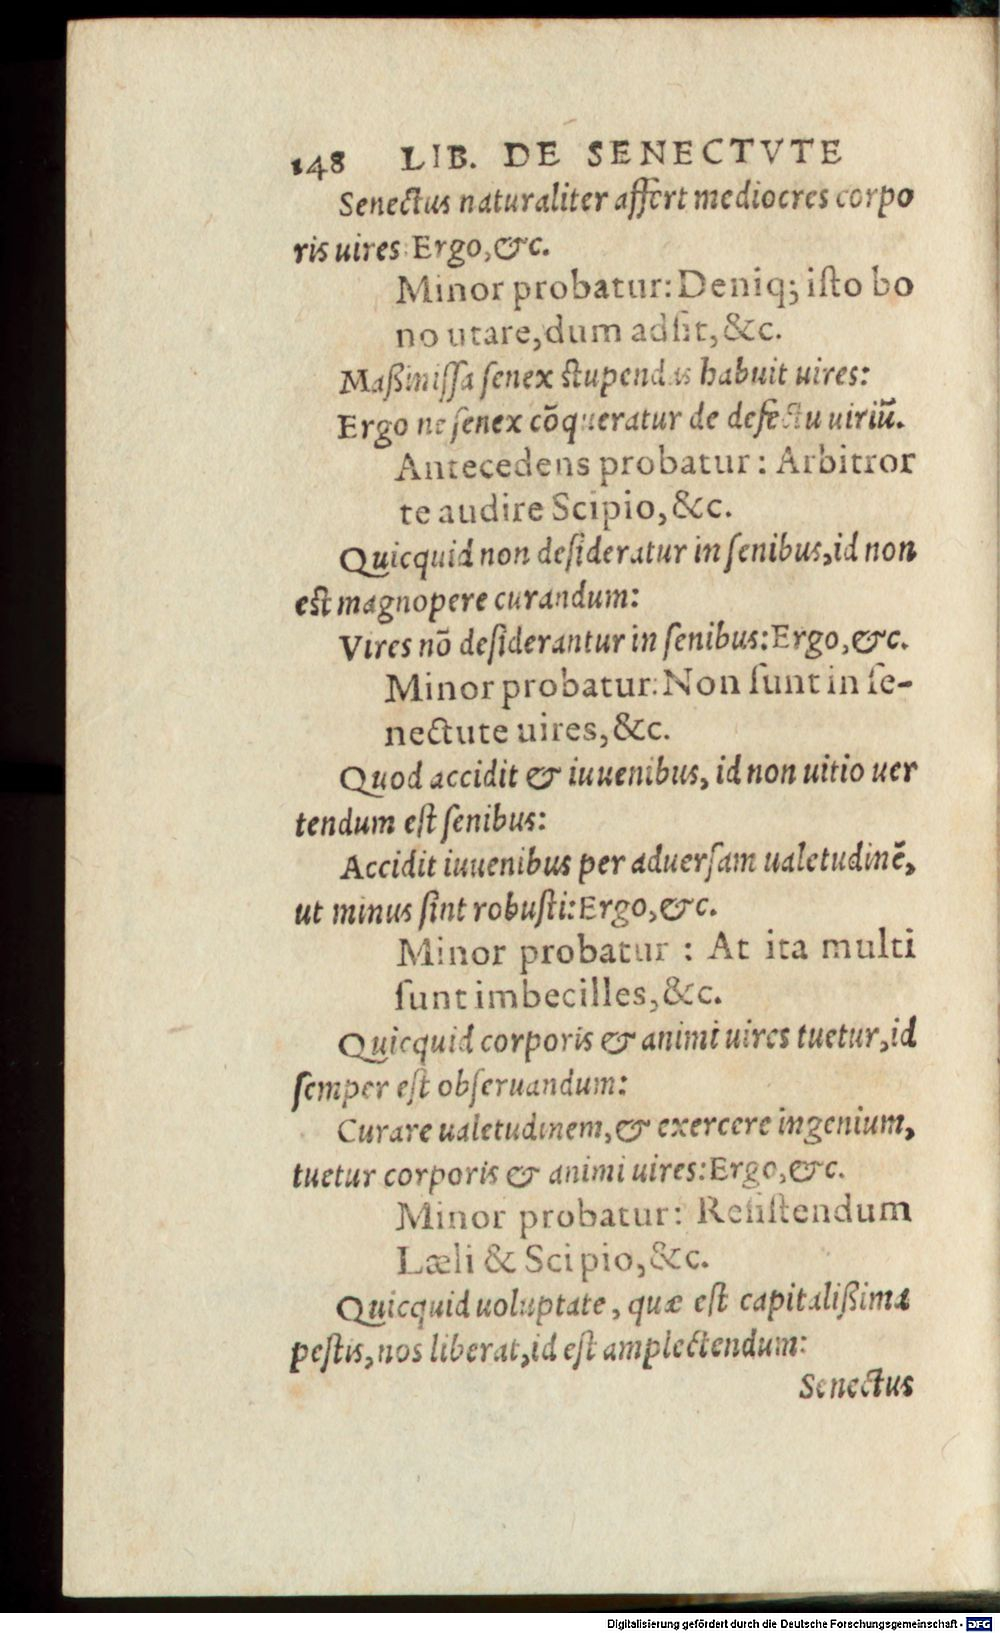 148 LIB. DE SENECTVTE
Senectus naturaliter affert mediocres corpo
ris uires: Ergo, &c.
Minor probatur: Deniq; iſto bo
no utare, dum adſit, &c.
Maßiniſſa ſenex ſtupendas habuit uires:
Ergo ne ſenex cōqueratur de defectu uiriū.
Antecedens probatur: Arbitror
te audire Scipio, &c.
Quicquid non deſideratur in ſenibus, id non
eſt magnopere curandum:
Vires nō deſiderantur in ſenibus: Ergo, &c.
Minor probatur: Non ſunt in ſe-
nectute uires, &c.
Quod accidit & iuuenibus, id non uitio uer
tendum eſt ſenibus:
Accidit iuuenibus per aduerſam ualetudinē,
ut minus ſint robuſti: Ergo, &c.
Minor probatur : At ita multi
ſunt imbecilles, &c.
Quicquid corporis & animi uires tuetur, id
ſemper eſt obſeruandum:
Curare ualetudinem, & exercere ingenium,
tuetur corporis & animi uires: Ergo, &c.
Minor probatur: Reſiſtendum
Læli & Scipio, &c.
Quicquid uoluptate, quæ eſt capitalißima
peſtis, nos liberat, id eſt amplectendum:
Senectus
Digitalisierung gefördert durch die Deutsche Forschungsgemeinschaft - DFG